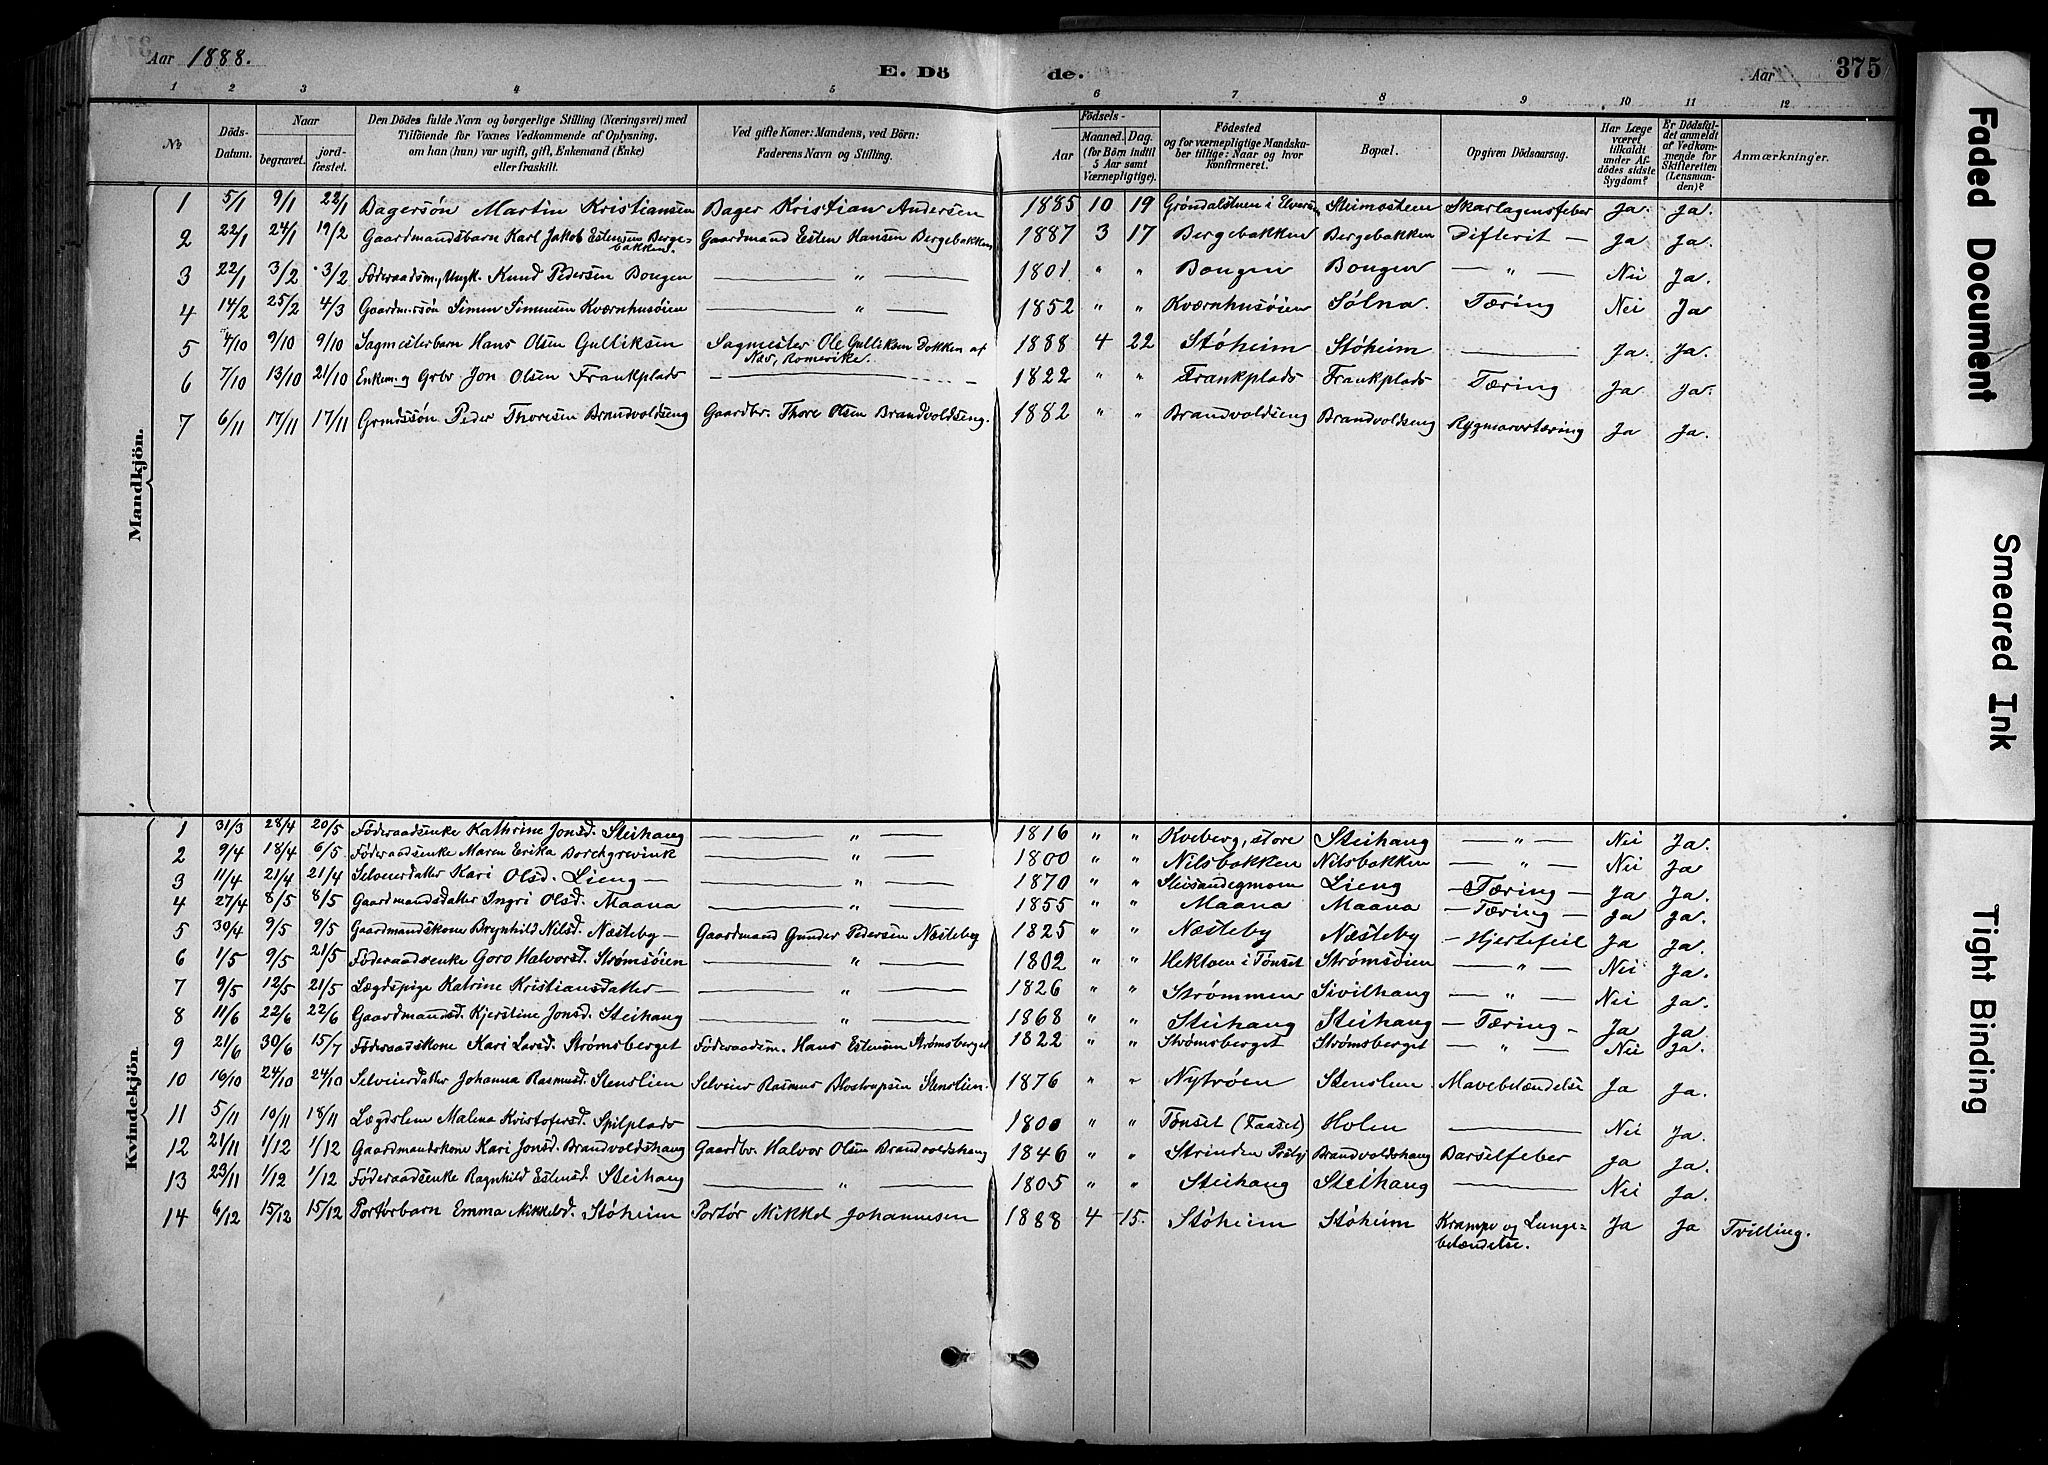 Aar 1888.
E. Dö de.
Aar
375
1 2 3 4 5 6 7 8 9 10 11 12
No
Döds-Datum.
Naar
begravet.
jord-fæstet.
Den Dödes fulde Navn og borgerlige Stilling (Næringsvei) med
Tilföiende for Voxnes Vedkommende af Oplysning,
om han (hun) var ugift, gift, Enkemand (Enke)
eller fraskilt.
Ved gifte Koner: Mandens, ved Börn:
Faderens Navn og Stilling.
Födsels-
Aar
Maaned. Dag.
(for Börn indtil
5 Aar samt
Værnepligtige).
Födested
og for værnepligtige Mandska-
ber tillige: Naar og hvor
konfirmeret.
Bopæl.
Opgiven Dödsaarsag.
Har Læge
været
tilkaldt
under Af-
dödes sidste
Sygdom?
Er Dödsfal-
det anmeldt
af Vedkom-
mende for
Skifteretten
(Lensman-
den)?
Anmærkninger.
Mandkjön.
1 5/1 9/1 22/1 Bagersøn Martin Kristiansen Bager Kristian Andersen 1885 10 19 Grøndalstuen i Elverum Steimosteen Skarlagensfeber Ja. Ja.
2 22/1 24/1 19/2 Gaardmandsbarn Karl Jakob Estensen Berge-bakken. Gaardmand Esten Hansen Bergebakken 1887 3 17 Bergebakken Bergebakken Difterit — Ja Ja.
3 22/1 3/2 3/2 Föderaadsm., Ungk. Knud Pedersen Bongen — " — 1801. " " Bongen Bongen — " — Nei Ja.
4 14/2 25/2 4/3 Gaardmssøn Simen Simensen Kværnhusøien — " — 1852 " " Kværnhusøien Sølna. Tæring Nei Ja
5 4/10 9/10 9/10 Sagmesterbarn Hans Olsen Gulliksen Sagmester Ole Gulliksen Dokken af
Næs, Romerike. 1888 4 22 Støheim Støheim — Ja. Ja.
6 7/10 13/10 21/10 Enkem. og Grbr Jon Olsen Frankplads — 1822 " " Frankplads Frankplads Tæring Ja Ja.
7 6/11 17/11 17/11 Grmdssøn Peder Thoresen Brandvoldseng Gaardbr. Thore Olsen Brandvoldseng. 1882 " " Brandvoldseng Brandvoldseng Rygmarvstæring Ja Ja.
Kvindekjön.
1 31/3 28/4 20/5 Föderaadsenke Kathrine Jonsd. Steihang — " — 1816 " " Kveberg, store Steihang — " — Nei Ja.
2 9/4 18/4 6/5 Föderaadsenke Maren Erika Borchgrevink — " — 1800 " " Nilsbakken Nilsbakken — " — Nei Ja
3 11/4 21/4 21/4 Selveierdatter Kari Olsd. Lieng — — " — 1870 " " Steisandegmoen Lieng — Tæring — Ja Ja.
4 27/4 8/5 8/5 Gaardmandsdatter Ingri Olsd. Maana — " — 1855 " " Maana Maana — Tæring — Ja Ja.
5 30/4 9/5 9/5 Gaardmandskone Brynhild Nilsd. Næsteby — Gaardmand Gunder Pedersen Næsteby 1825 " " Næsteby Næsteby — Hjertefeil Ja Ja.
6 1/5 9/5 21/5 Föderaadsenke Goro Halvorsd. Strømsøien — " — 1802 " " Hektoen i Tønset Strømsøien — " — Nei Ja.
7 9/5 12/5 21/5 Lægdspige Katrine Kristiansdatter — — " — 1826 " " Strømmen Sivilhang — " — Nei Ja.
8 11/6 22/6 22/6 Gaardmandsd. Kjerstine Jonsd. Steihang — " — 1868 " " Steihang Steihang — Tæring — Ja Ja.
9 21/6 30/6 15/7 Föderaadskone Kari Larsd. Strømsberget Föderaadsm. Hans Estensen Strømsberget 1822 " " Strømsberget Strømsberget — " — Nei Ja.
10 16/10 24/10 24/10 Selveierdatter Johanna Rasmusd. Stenslien Selveier Rasmus Blostrupsen Stenslien. 1876 " " Nytrøen Stenslien Mavebetændelse Ja Ja.
11 5/11 10/11 18/11 Lægdslem Malena Kristofersd. Spilplads — 1800 " " Tønset (Faaset) Holen — Nei Ja.
12 21/11 1/12 1/12 Gaardmandskone Kari Jonsd. Brandvoldshang Gaardbr. Halvor Olsen Brandvoldshang 1846 " " Strinden Brandvoldshang Barselfeber Ja Ja.
13 23/11 1/12 1/12 Föderaadsenke Ragnhild Estensd. Steihang — " — 1805 " " Steihang Steihang — Nei Ja.
14 6/12 15/12 15/12 Portørbarn Emma Mikkelsd. Støheim Portør Mikkel Johannesen 1888 4 15. Støheim Støheim Krampe og Lunge-
betændelse. Ja Ja Tvilling.
Faded Document
Smeared Ink
Tight Binding